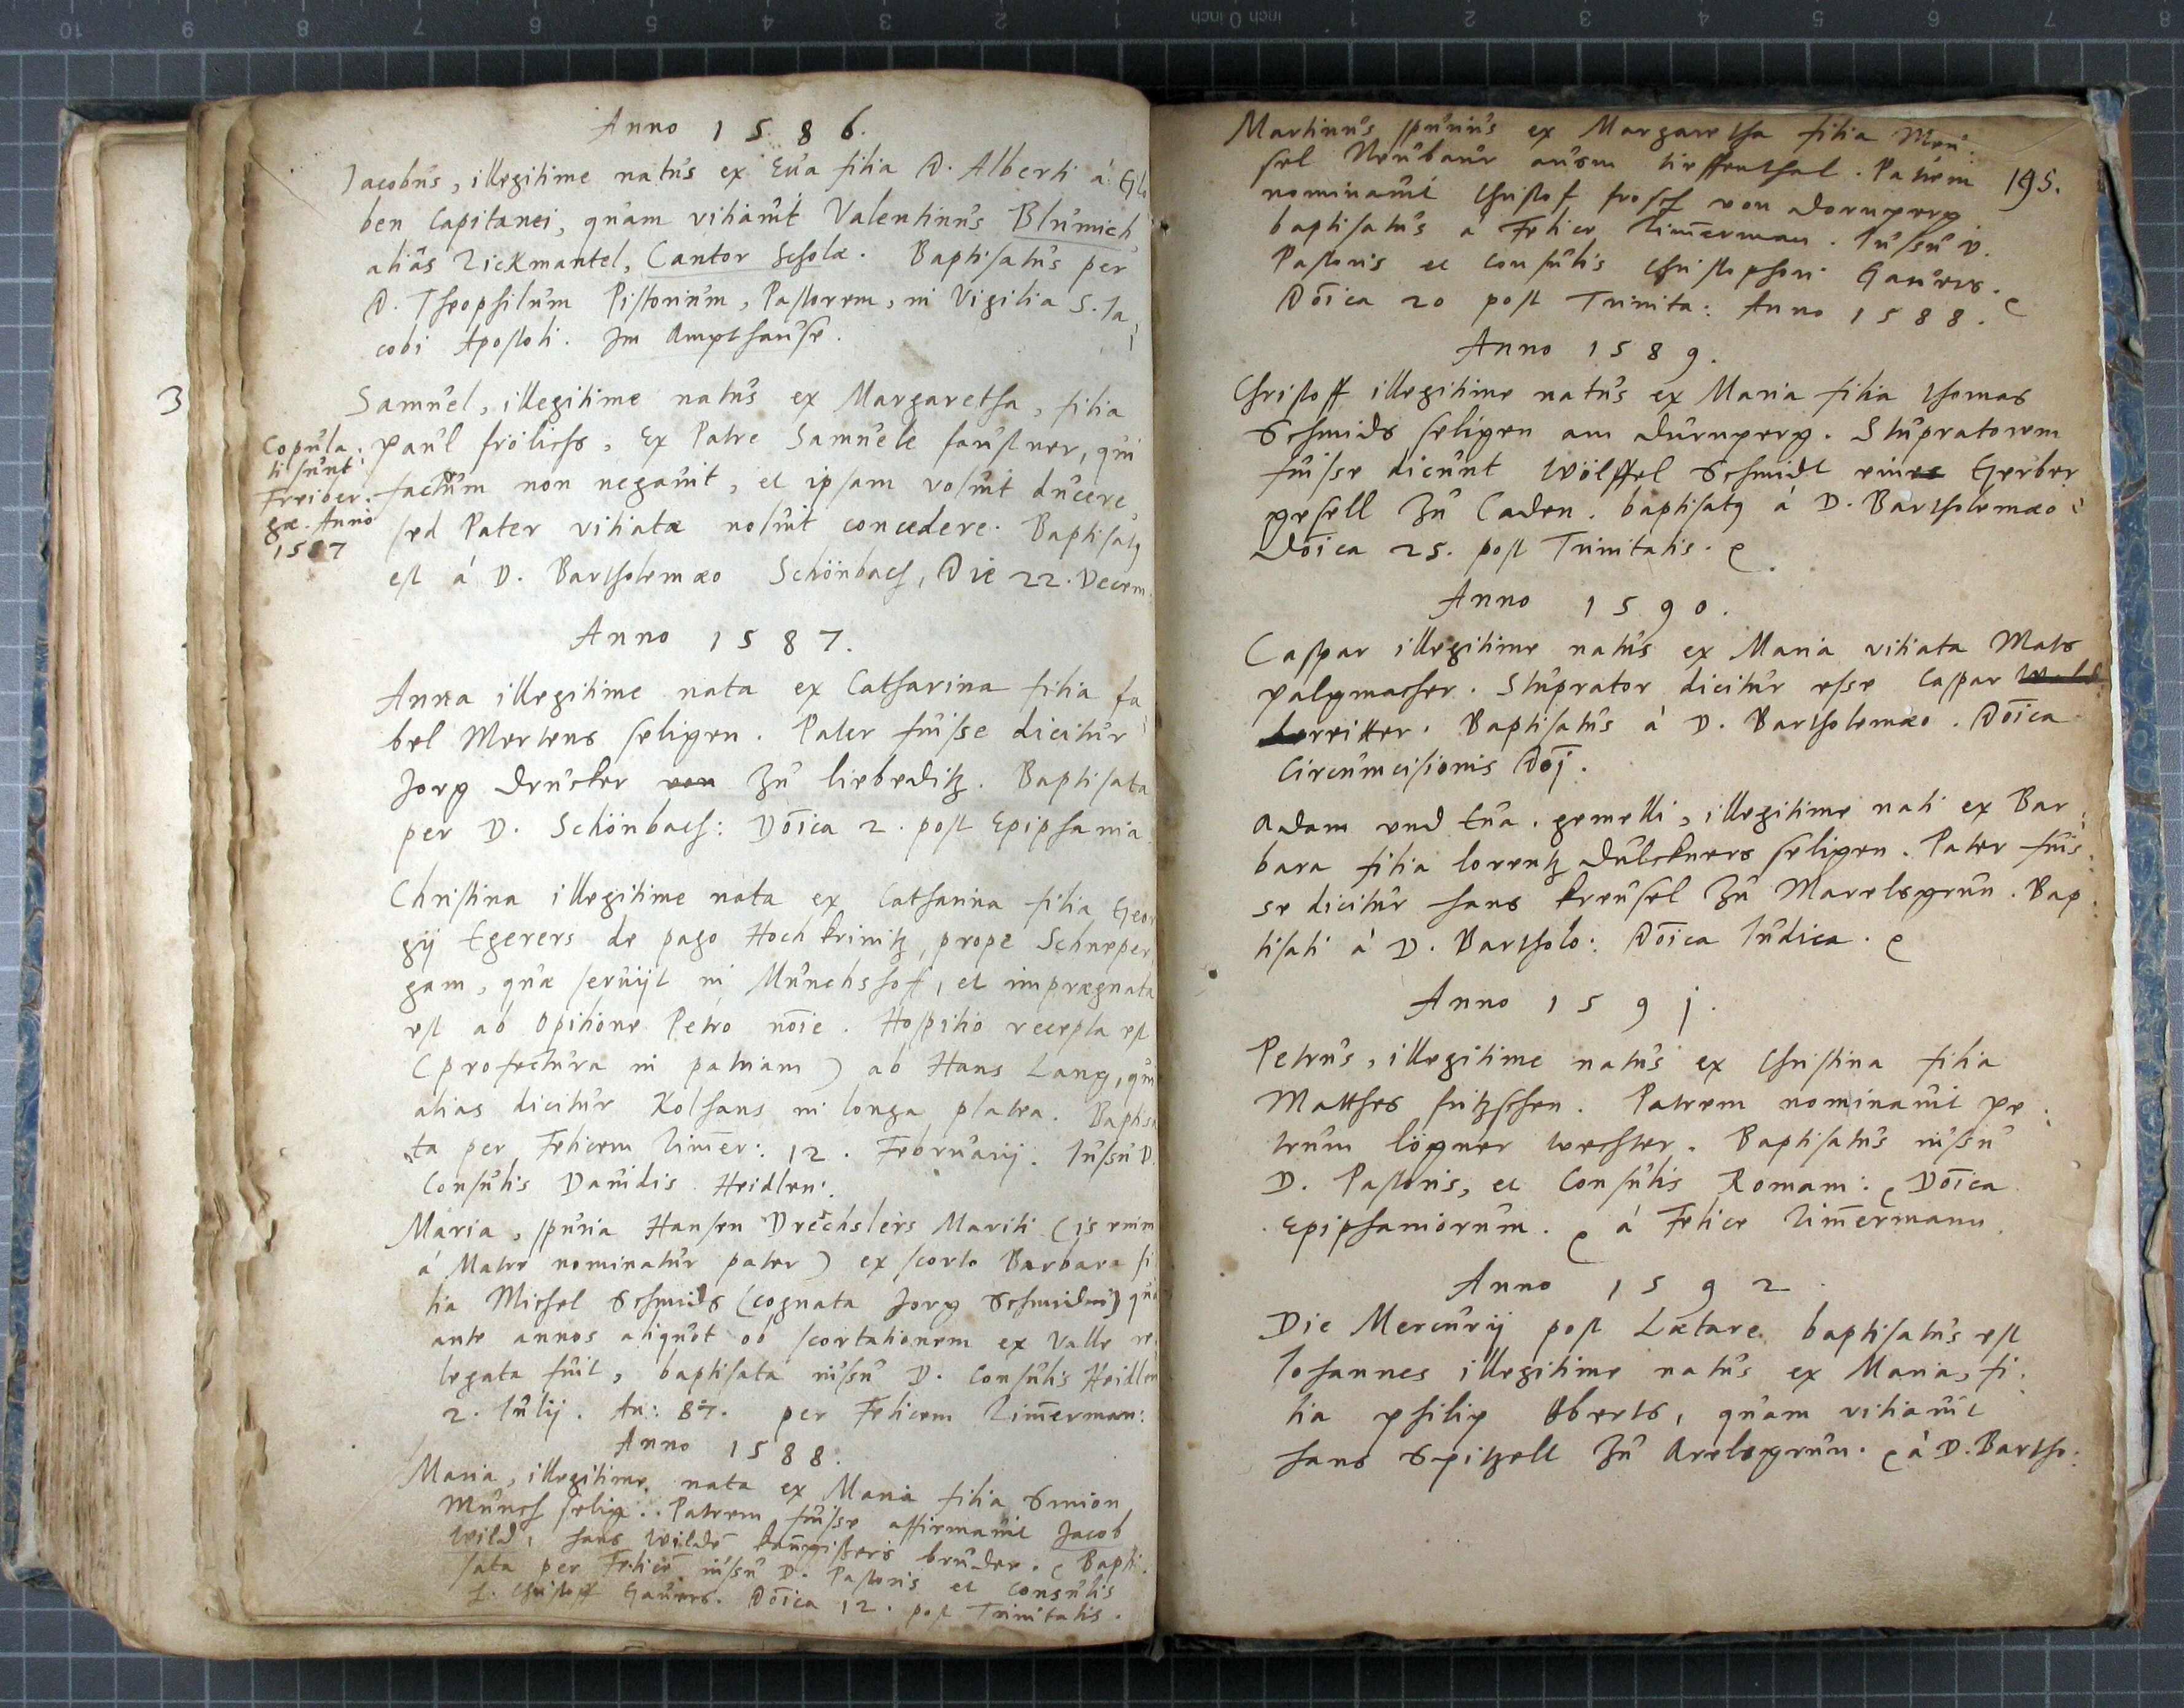 Anno 1586.
Jacobus, illegitime natus ex Eua filia D. Alberti á
ben Capitanei, quam vitiauit Valentinus Blumich,
aliàs Zickmantel, Cantor Scholæ. Baptisatus per
D. Theophilum Pistorium, Pastorem, in Vigilia S. Ja
cobi Apostoli. Im Ampthause.
3
Samuel, illegitime natus ex Margaretha, filia
Paul Frölichs, Ex Patre Samuele Faustner, qui
factum non negauit, et ipsam voluit ducere,
sed Pater vitiatæ noluit concedere. Baptisatq
est á D. Bartholemæo Schönbach, Die 22. Decem.
Copula:
ti sunt
Freiber:
gæ. Anno
1587
Anno 1587.
Anna illegitime nata ex Catharina filia Fa
bel Mertens seligen. Pater fuisse dicitur
Jorg Drucker von zu Liebeditz. Baptisata
per D. Schönbach: Dōica 2. post Epiphania
Christina illegitime nata ex Catharina filia Geor
gij Egerers de pago Hochkrinitz, prope Schneper
gam, quæ seruijt in Munchshoff, et imprægnata
est ab Opilione Petro nōie. Hospitio recepta est
(profectura in patriam) ab Hans Lang, qui
alias dicitur Kolhans in longa platea. Baptisa
ta per Felicem Zim̄er: 12. Februarij. Iussu D.
Consulis Dauidis Heidlen:
Maria, spuria Hansen Drechslers Mariti (is enim
á Matre nominatur pater) ex scorto Barbara fi
lia Michel Schmids (cognata Jorg Schmidin) quæ
ante annos aliquot ob scortationem ex Valle re
legata fuit, baptisata iussu D. Consulis Heidlen
2. Iulij. An: 87. per Felicem Zim̄erman:
Anno 1588.
Maria, illegitime nata ex Maria filia Simon
Münch selig. Patrem fuisse affirmauit Jacob
Wild, Hans Wilde bruder. Bapti:
sata per Felicē iussu D. Pastoris et Consulis
H. Christoff Gauers. Dōica 12. post Trinitatis.
Martinus spurius ex Margaretha filia Men:
sel Neubaur ausm tieffenthal. Patrem
195.
nominauit Christof Frosch von Dornperg
baptisatus á Felice Zim̄erman. Iussu D.
Pastoris et Consulis Christophori Gauers.
Dōica 20 post Trinita: Anno 1588.
Anno 1589.
Christoff illegitime natus ex Maria filia Thomas
Schmids seligen am Durnperg. Stupratorem
fuisse dicunt Wölffel Schmidt eines Gerber
gesell zu Caden. baptisatq á D. Bartholemæo
Dōica 25. post Trinitatis.
Anno 1590.
Caspar illegitime natus ex Maria vitiata Mats
Palgmacher. Stuprator dicitur esse Caspar
bereitter. Baptisatus á D. Bartholemæo. Dōica
Circumcisionis Dōj.
Adam vnd Eua. gemelli, illegitime nati ex Bar:
bara filia Lorentz Dulckners seligen. Pater fuis:
se dicitur Hans Kreusel zu Marelsgrun. Bap:
tisati á D. Bartholo: Dōica Iudica.
Anno 1591.
Petrus, illegitime natus ex Christina filia
Matthes Fritzschen. Patrem nominauit Pe:
trum Lögner Wechter. Baptisatus iussu
D. Pastoris, et Consulis Romani: Dōica
Epiphaniorum. á Felice Zim̄ermann
Anno 1592
Die Mercurij post Lætare baptisatus est
Johannes illegitime natus ex Maria, fi:
lia Philip Oberts, quam vitiauit
Hans Spitzell zu Arelsgrun. á D. Bartho: